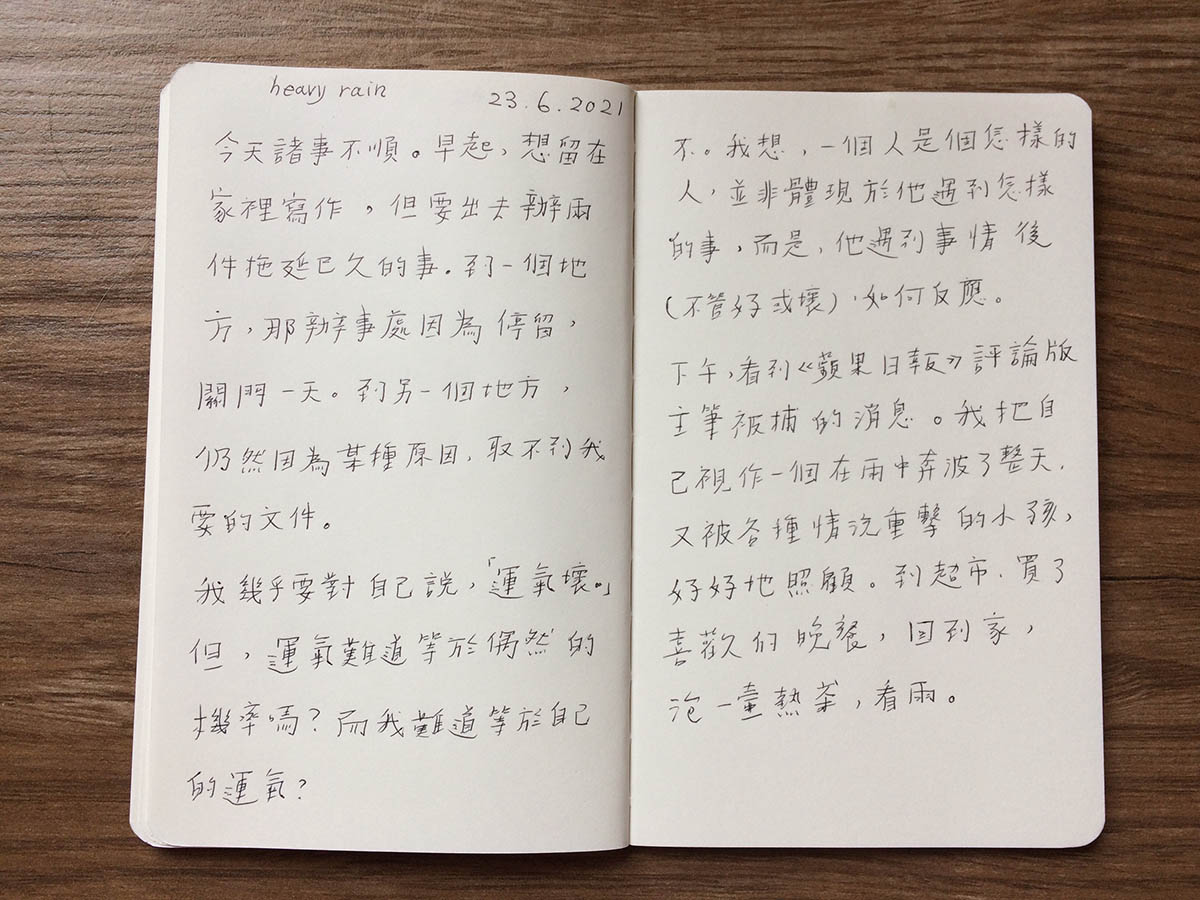 heavy rain
23.6.2021
今天諸事不順。早起，想留在
家裡寫作，但要出去辦兩
件拖延已久的事。到一個地
方，那辦事處因為停留，
關門一天。到另一個地方，
仍然因為某種原因，取不到我
要的文件。
我幾乎要對自己說，「運氣壞。」
但，運氣難道等於偶然的
機率嗎？而我難道等於自己
的運氣？
不。我想，一個人是個怎樣的
人，並非體現於他遇到怎樣
的事，而是，他遇到事情後
（不管好或壞），如何反應。
下午，看到《蘋果日報》評論版
主筆被捕的消息。我把自
己視作一個在雨中奔波了整天，
又被各種情況重擊的小孩，
好好地照顧。到超市，買了
喜歡的晚餐，回到家，
泡一壺熱茶，看雨。